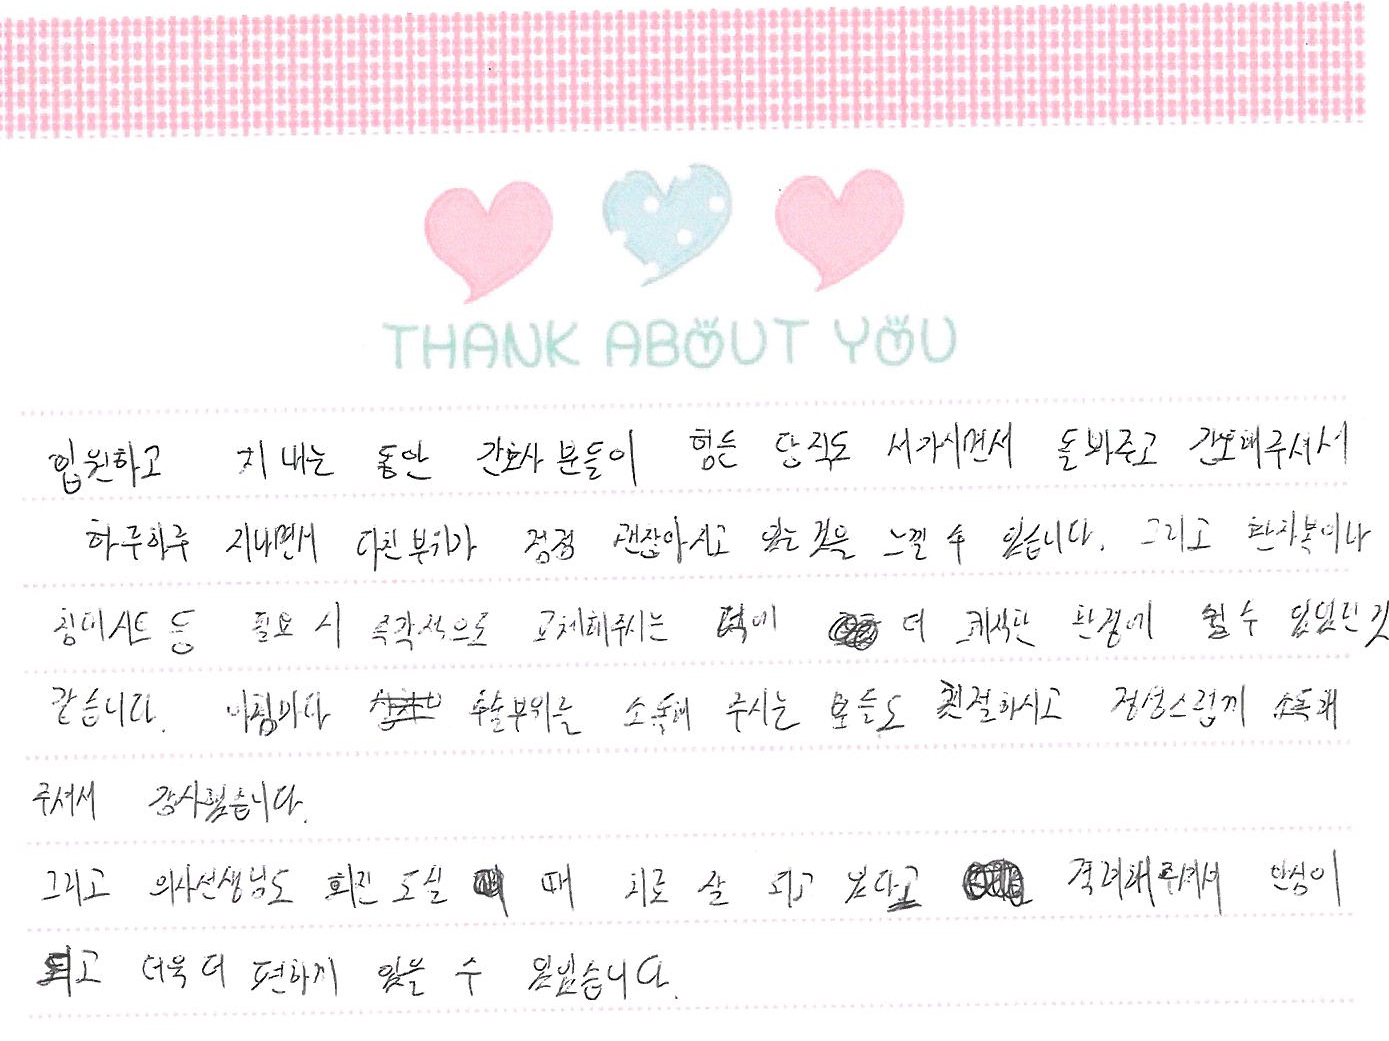 THANK ABOUT YOU
입원하고 지내는 동안 간호사 분들이 힘든 당직도 서가시면서 돌봐주고 간호해주셔서
하루하루 지내면서 다친부위가 점점 괜찮아지고 있는 것을 느낄 수 있습니다. 그리고 환자복이나
침대시트 등 필요 시 즉각적으로 교체해주시는 덕에 더 쾌적한 환경에 쉴 수 있었던 것
같습니다. 아침마다 수술부위를 소독해 주시는 분들도 친절하시고 정성스럽게 소독해
주셔서 감사했습니다.
그리고 의사선생님도 회진 도실 때 치료 잘 되고 있다고 격려해주셔서 안심이
되고 더욱 더 편하게 있을 수 있었습니다.